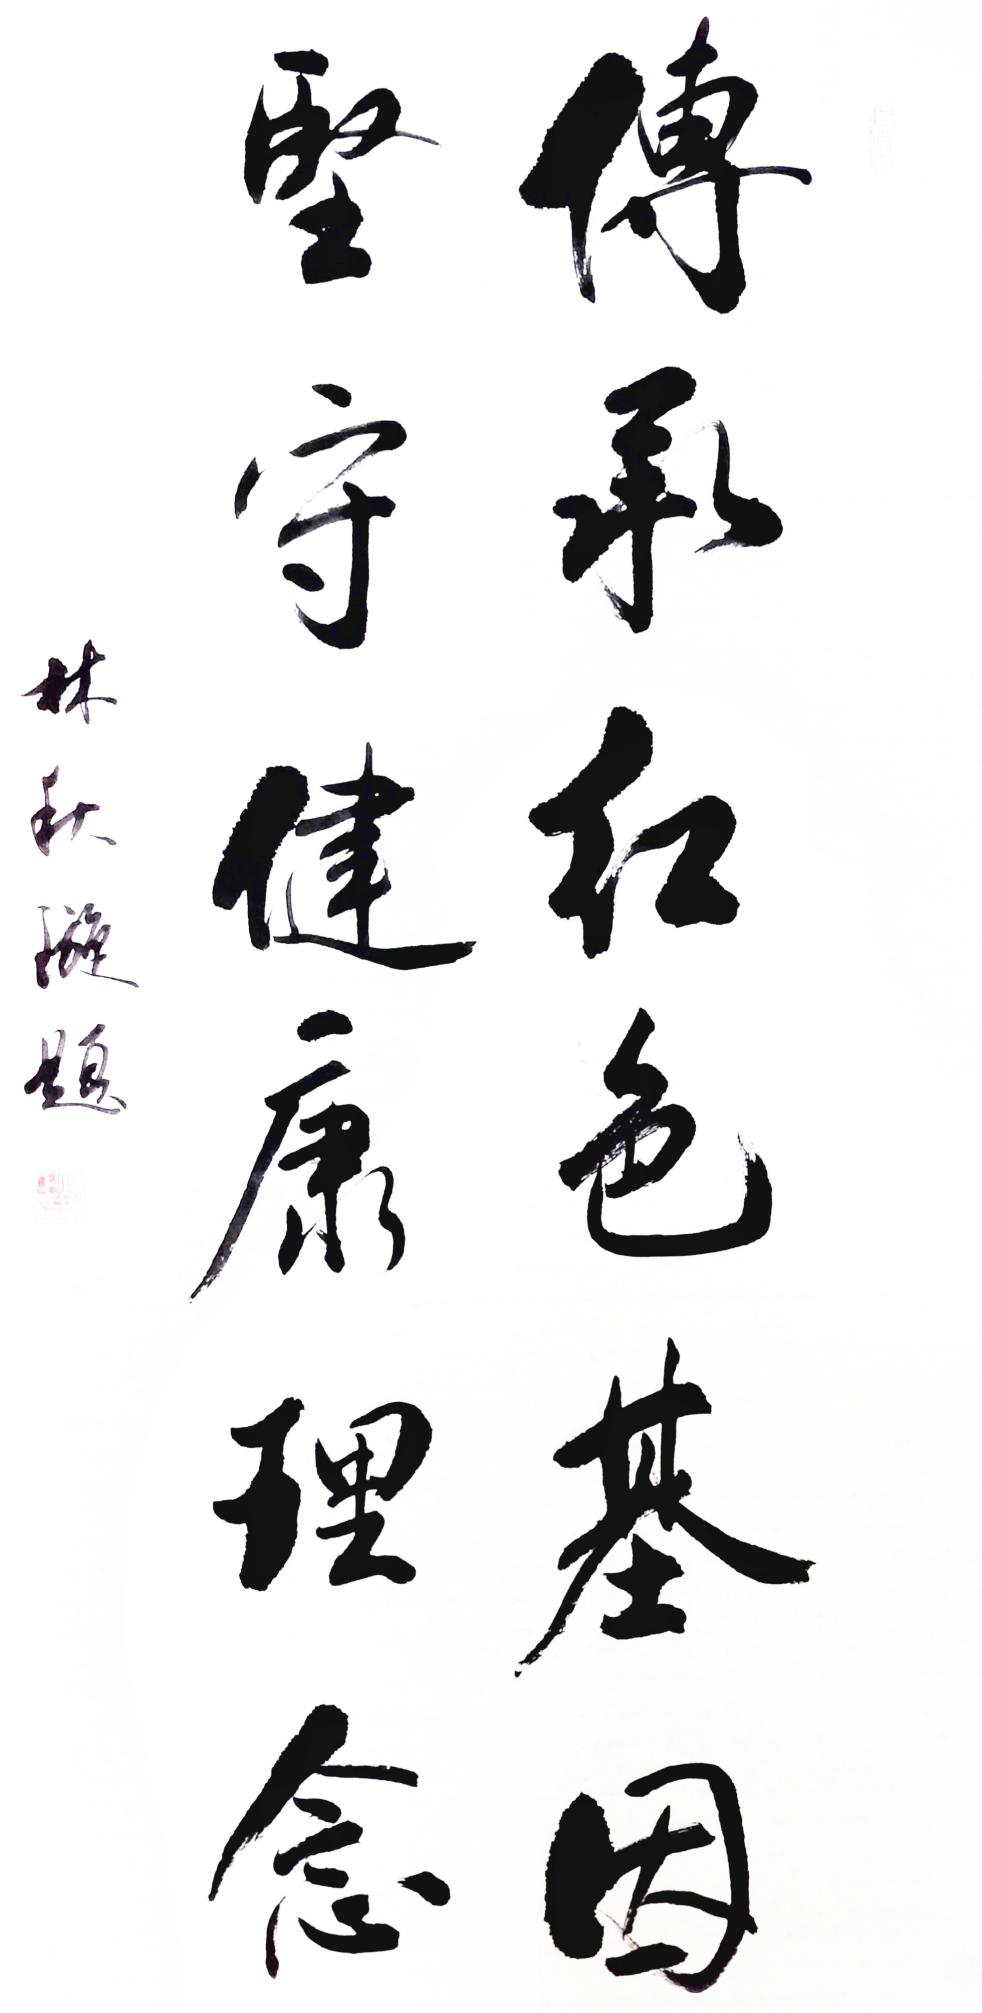 傳承红色基因
堅守健康理念
林秋璇題